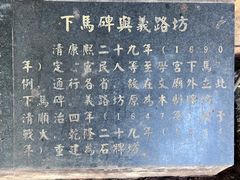 下馬碑與義路坊
清康熙二十九年(1690
年)定,官民人等至學宮下馬
例,通行各省,
下馬碑。義路坊原為木
清順治四年(1647
戰火,乾隆二十年(
年)重建為石牌坊。